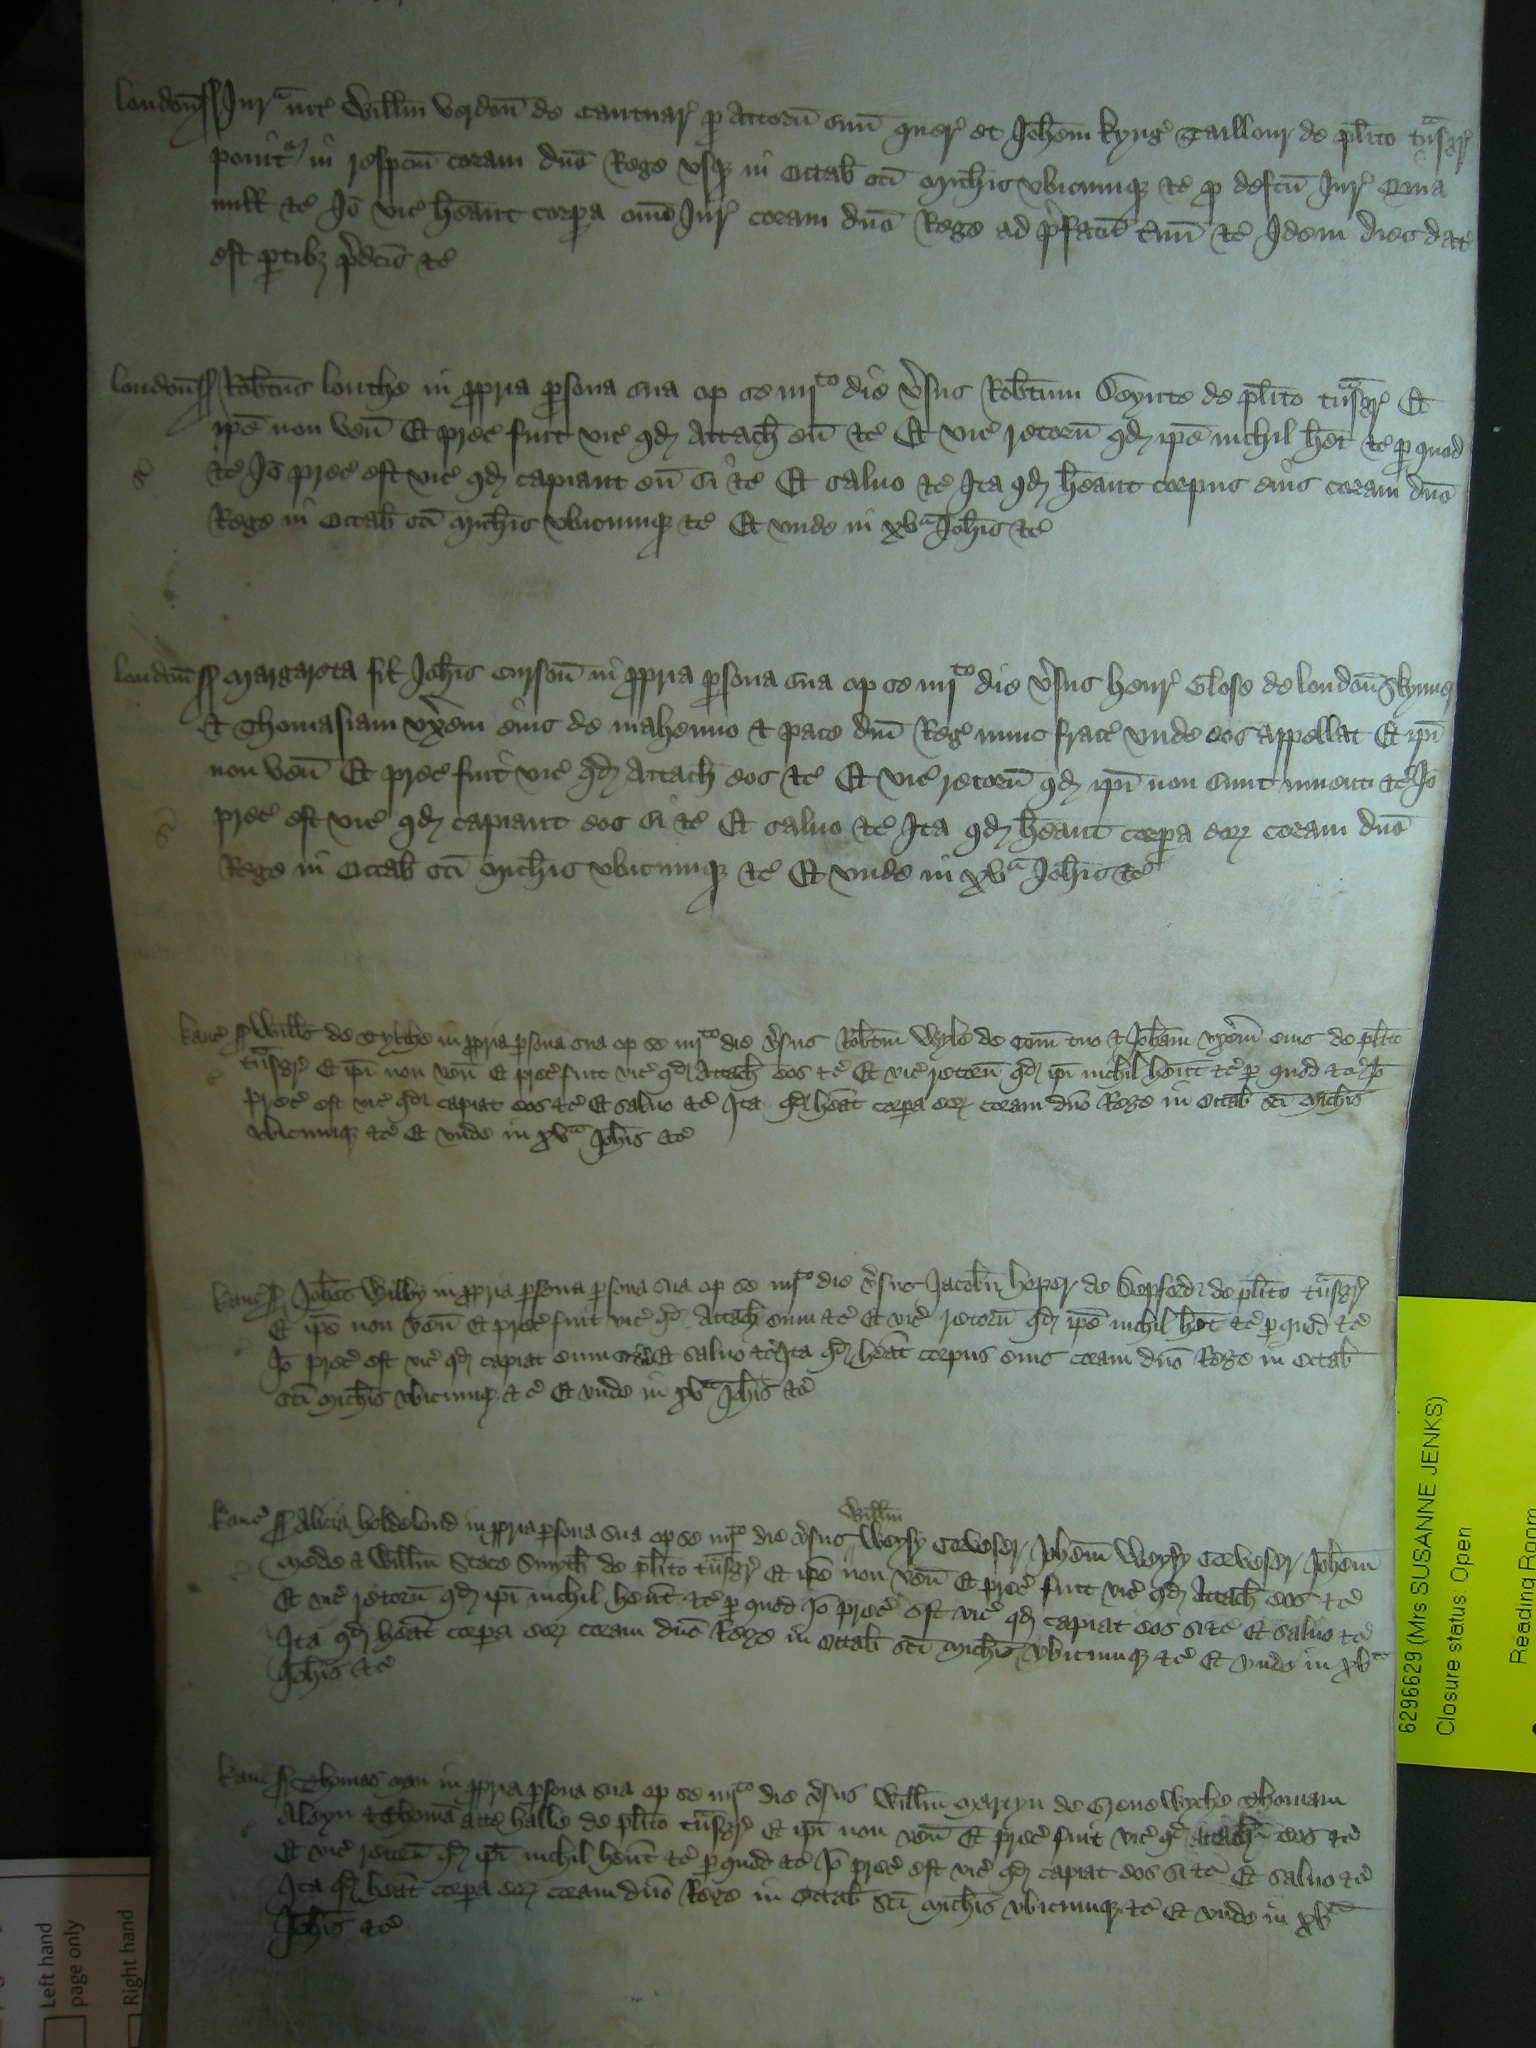 london̄ ſſ Jurª int̄ Willm̄ Verdon̄ de Cantuar' p̲ Attorn̄ suū quer' et Joh̄em kyng' Taillour de pl̄ito tn̄sgr'
ponitr in respc̄m coram dn̄o Rege vsq̧ in Octab̄ sc̄i Mich̄is vbicumq̧ &c̄ p̲ defc̄u Jur' Quia
null' &c̄ Jō vic̄ h̄eant corp̲a om̄i Jur' coram dn̄o Rege ad p̄fatū t̄mī &c̄ Idem dies dat'
est p̲tib̧ p̄dc̄is &c̄
london̄ ſſ Rob̄tus louthe in p̲pria p̲sona sua op se iiijto die v̄sus Rob̄tum Seynte de pl̄ito tn̄sgr' Et
ip̄e non ven̄ Et prec̄ fuit vic̄ qd̄ Attach̄ eū &c̄ Et vic̄ retorn̄ qd̄ ip̄e nichil h̄et &c̄ p̲ quod
&c̄ Jō prec̄ est vic̄ qd̄ capiant eū si &c̄ Et saluo &c̄ Ita qd̄ h̄eant corpus eius coram dn̄o
Rege in Octab̄ sc̄i Mich̄is vbicumq̧ &c̄ Et vnde in xvª Joh̄is &c̄
london̄ ſſ Margareta fil' Joh̄is Curson̄ in p̲pria p̲sona sua op se iiijto die v̄sus henr' Close de london̄ Skynn̄
Et Thomasiam vx̄em eius de mahemio & pace dn̄i Reg' nunc fract' vnde eos appellat Et ip̄i
non ven̄ Et prec̄ fuit vic̄ qd̄ Attach̄ eos &c̄ Et vic̄ retorn̄ qd̄ ip̄i non sunt inuenti &c̄ Jō
prec̄ est vic̄ qd̄ capiant eos si &c̄ Et saluo &c̄ Ita qd̄ h̄eant corp̲a eoꝝ coram dn̄o
Rege in Octab̄ sc̄i Mich̄is vbicumq̧ &c̄ Et vnde in xvª Joh̄is &c̄
kanc̄ ſſ Will̄s de Tylthe in p̲pria p̲sona sua op se iiijto die v̄sus Rob̄tm̄ Wyle de Com̄ tuo & Joh̄am vx̄em eius de pl̄ito
tn̄sgr' Et ip̄i non ven̄ Et prec̄ fuit vic̄ qd̄ Attach̄ eos &c̄ Et vic̄ retorn̄ qd̄ ip̄i nichil h̄ent &c̄ p̲ quod &c̄ Jō
prec̄ est vic̄ qd̄ capiat eos &c̄ Et saluo &c̄ Ita qd̄ h̄eat corp̲a eoꝝ coram dn̄o Rege in Octab̄ sc̄i Mich̄is
vbicumq̧ &c̄ Et vnde in xvª Joh̄is &c̄
kanc̄ ſſ Joh̄es Wilby in p̲pria p̲sona p̲sona sua op se iiijto die v̄sus Jacob̄u heper de Sepford de pl̄ito tn̄sgr'
Et ip̄e non ven̄ Et prec̄ fuit vic̄ qd̄ Attach̄ eum &c̄ Et vic̄ retorn̄ qd̄ ip̄e nichil h̄et &c̄ p̲ quod &c̄
Jō prec̄ est vic̄ qd̄ capiat eum Et saluo &c̄ Ita qd̄ h̄eat corpus eius coram dn̄o Rege in Octab̄
sc̄i Mich̄is vbicumq̧ &c̄ Et vnde in xvª Joh̄is &c̄
Willm̄
kanc̄ ſſ Alicia holdelond in p̲pria p̲sona sua op se iiijto die v̄sus Weysy Corveser Joh̄em Weysy Corveser Joh̄em
Mede & Willm̄ Stace Smyth̄ de pl̄ito tn̄sgr' Et ip̄e non ven̄ Et prec̄ fuit vic̄ qd̄ Attach̄ eos &c̄
Et vic̄ retorn̄ qd̄ ip̄i nichil h̄ent &c̄ p̲ quod Jō prec̄ est vic̄ qd̄ capiat eos si &c̄ Et saluo &c̄
Ita qd̄ h̄eat corp̲a eoꝝ coram dn̄o Rege in Octab̄ sc̄i Mich̄is vbicumq̧ &c̄ Et vnde in xvª
Joh̄is &c̄
kanc̄ ſſ Thomas Man in p̲pria p̲sona sua op se iiijto die v̄sus Willm̄ Martyn de Grenewyche Thomam
Aleyn & Thomā atte halle de pl̄ito tn̄sgr' Et ip̄i non ven̄ Et prec̄ fuit vic̄ qd̄ Attach̄ eos &c̄
Et vic̄ retorn̄ qd̄ ip̄i nichil h̄ent &c̄ p̲ quod &c̄ Jō prec̄ est vic̄ qd̄ capiat eos si &c̄ Et saluo &c̄
Ita qd̄ h̄eat corp̲a eoꝝ coram dn̄o Rege in Octab̄ sc̄i Mich̄is vbicumq̧ &c̄ Et vnde in xvª
Joh̄is &c̄
6296629 (Mrs SUSANNE JENKS)
Closure status: Open
Reading Room
Left hand
page only
Right hand